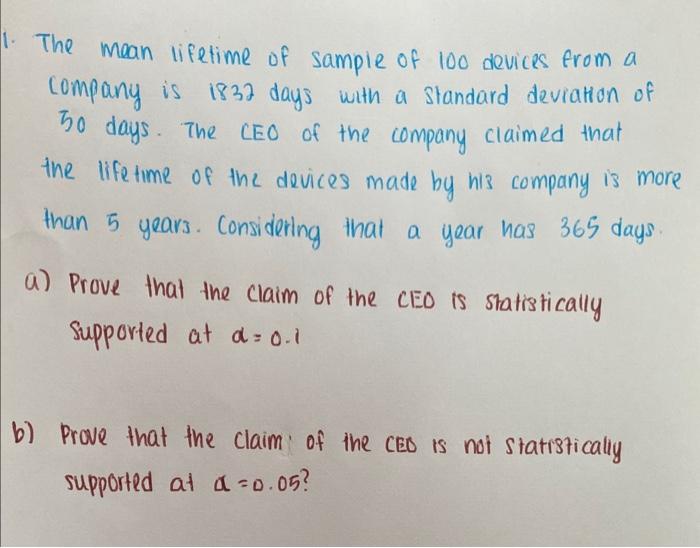 1. The mean lifetime of sample of 100 devices from a
company is 1832 days with a standard deviation of
50 days. The CEO of the company claimed that
the lifetime of the devices made by his company is more
than 5 years. Considering that a year has 365 days.
a) Prove that the claim of the CEO is statistically
supported at α = 0.1
b) Prove that the claim of the CEO is not statistically
supported at α = 0.05?